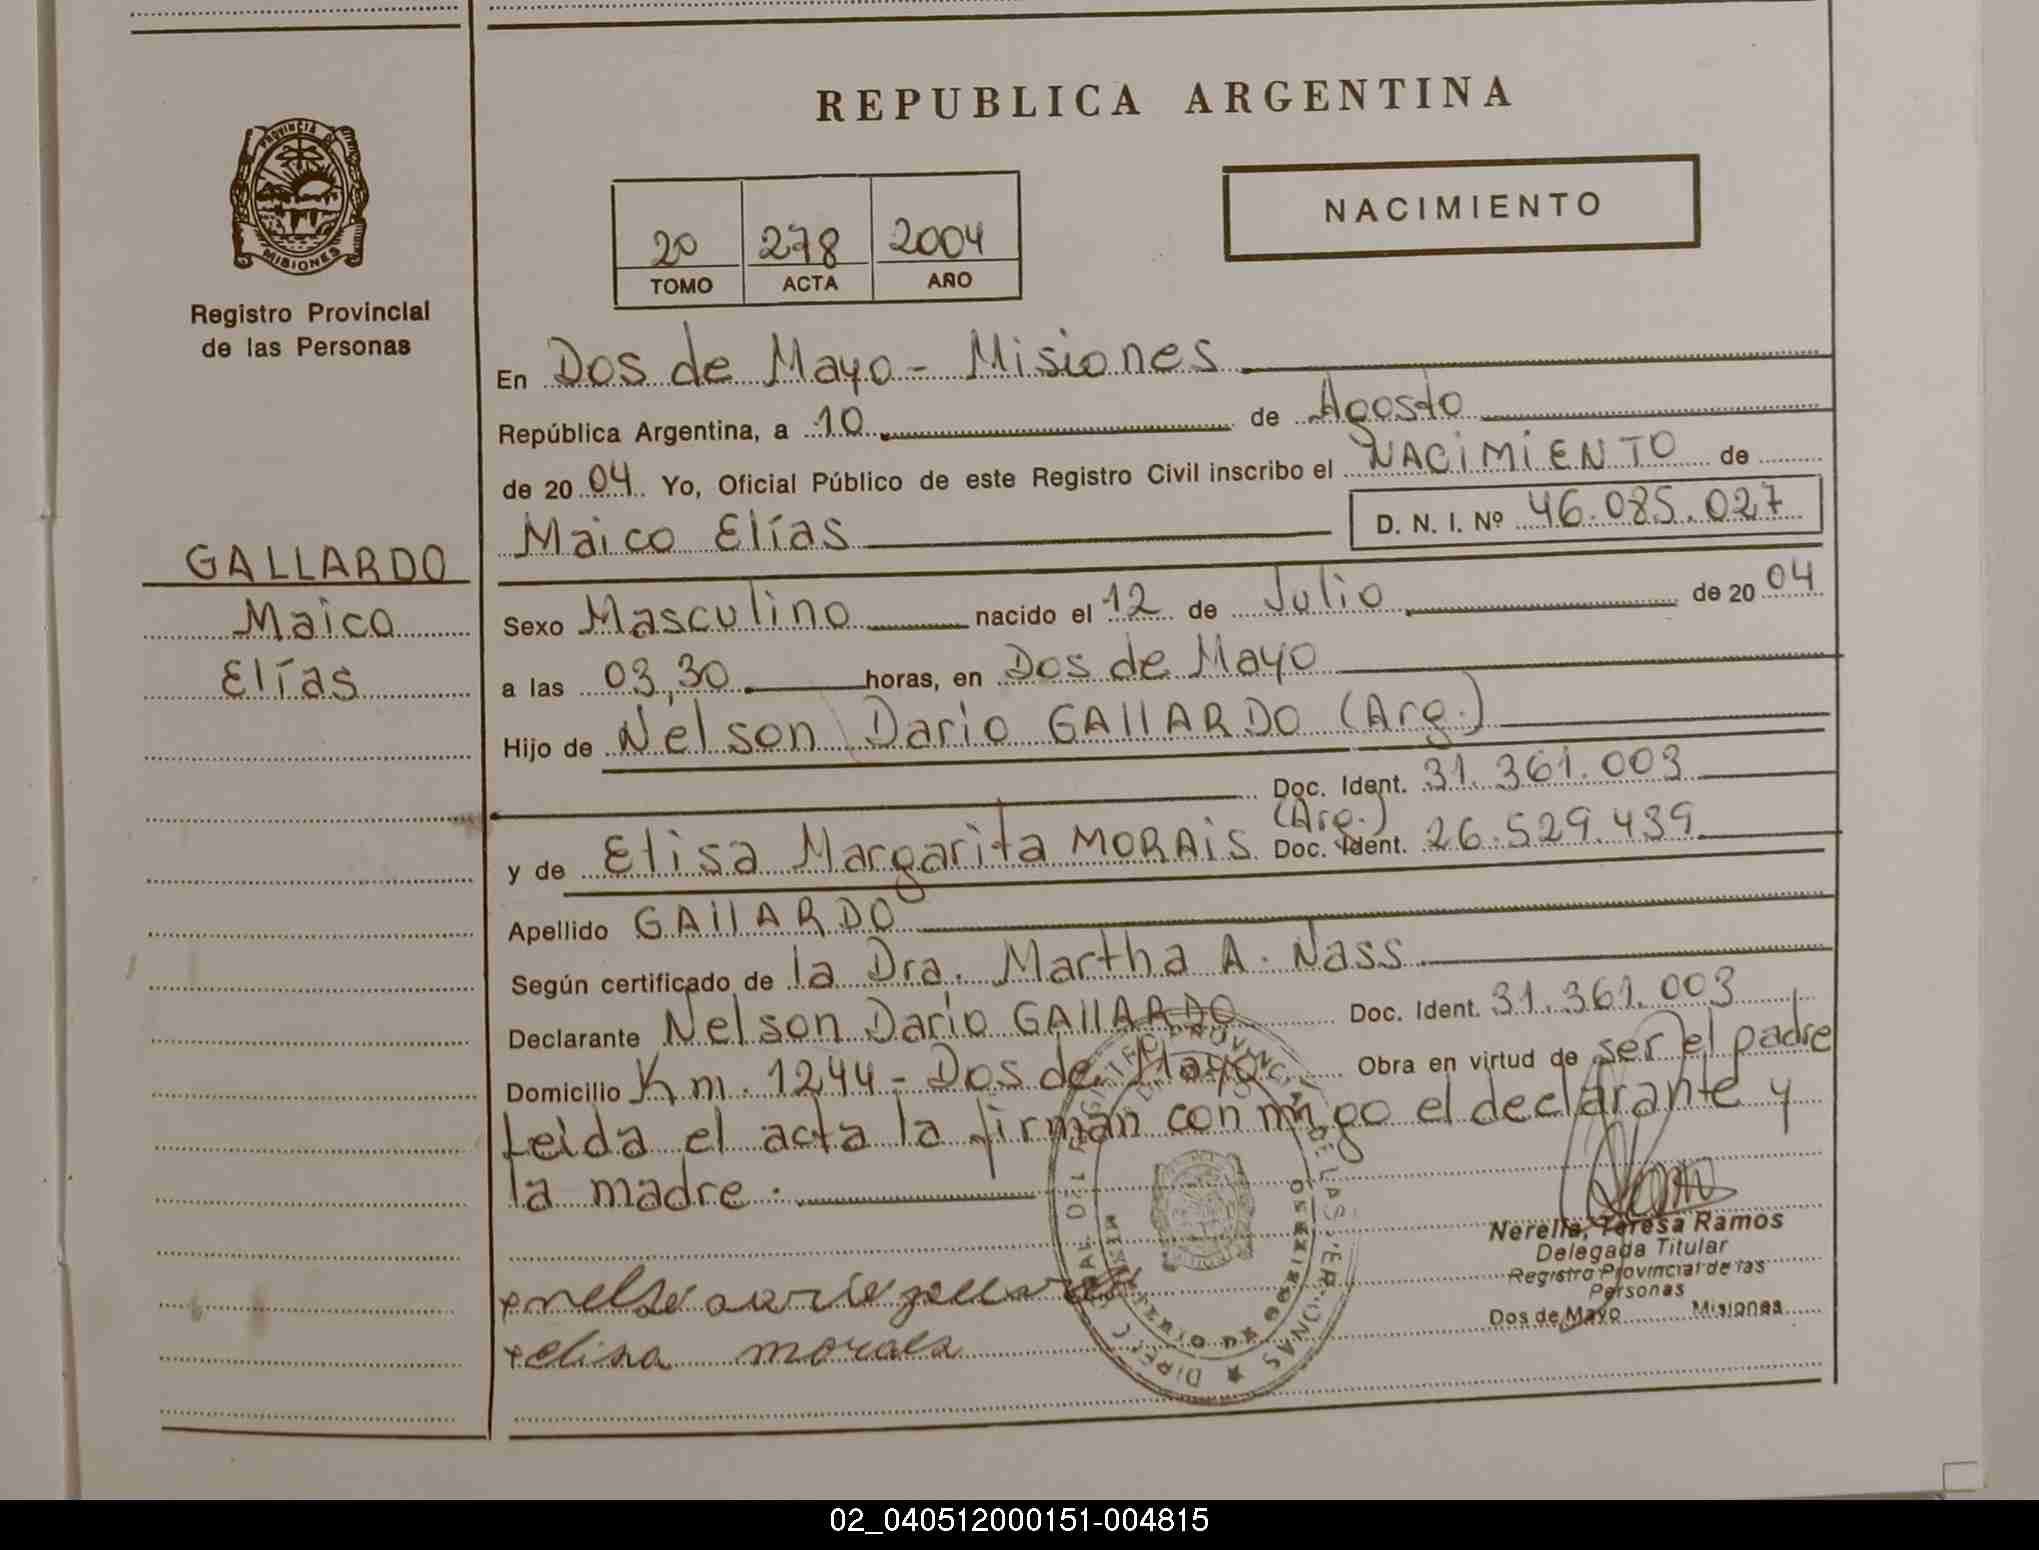 REPUBLICA ARGENTINA
PROVINCIA D
MISIONES
Registro Provincial
de las Personas
20 278 2004
TOMO ACTA AÑO
NACIMIENTO
En Dos de Mayo - Misiones
República Argentina, a 10 de Agosto
de 2004 Yo, Oficial Público de este Registro Civil inscribo el NACIMIENTO de
Maico Elías D. N. I. Nº 46.085.027
GALLARDO
Maico
Elías
Sexo Masculino nacido el 12 de Julio de 2004
a las 03,30 horas, en Dos de Mayo
Hijo de Nelson Dario GAllARDO (Arg.)
Doc. Ident. 31.361.003
(Arg.)
y de Elisa Margarita MORAiS Doc. Ident. 26.529.439
Apellido GAllARDO
Según certificado de la Dra. Martha A. Nass
Declarante Nelson Dario GAllARDO Doc. Ident. 31.361.003
Domicilio Km. 1244 - Dos de Mayo Obra en virtud de ser el padre
Leida el acta la firman conmigo el declarante y
la madre.
Nerelia, Teresa Ramos
Delegada Titular
Registro Provincial de las
Personas
Dos de Mayo Misiones
elisa moraes
02_040512000151-004815